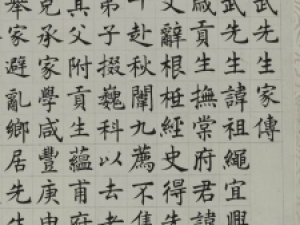 武先生家傳
武先生諱祖繩宜興
歲貢生撫棠府君諱
文辭根柢經史得先
十赴秋闈九薦不售
弟子掇巍科以去者
其父附貢生蘊甫府
克承家學咸豐庚申
舉家避亂鄉居先生